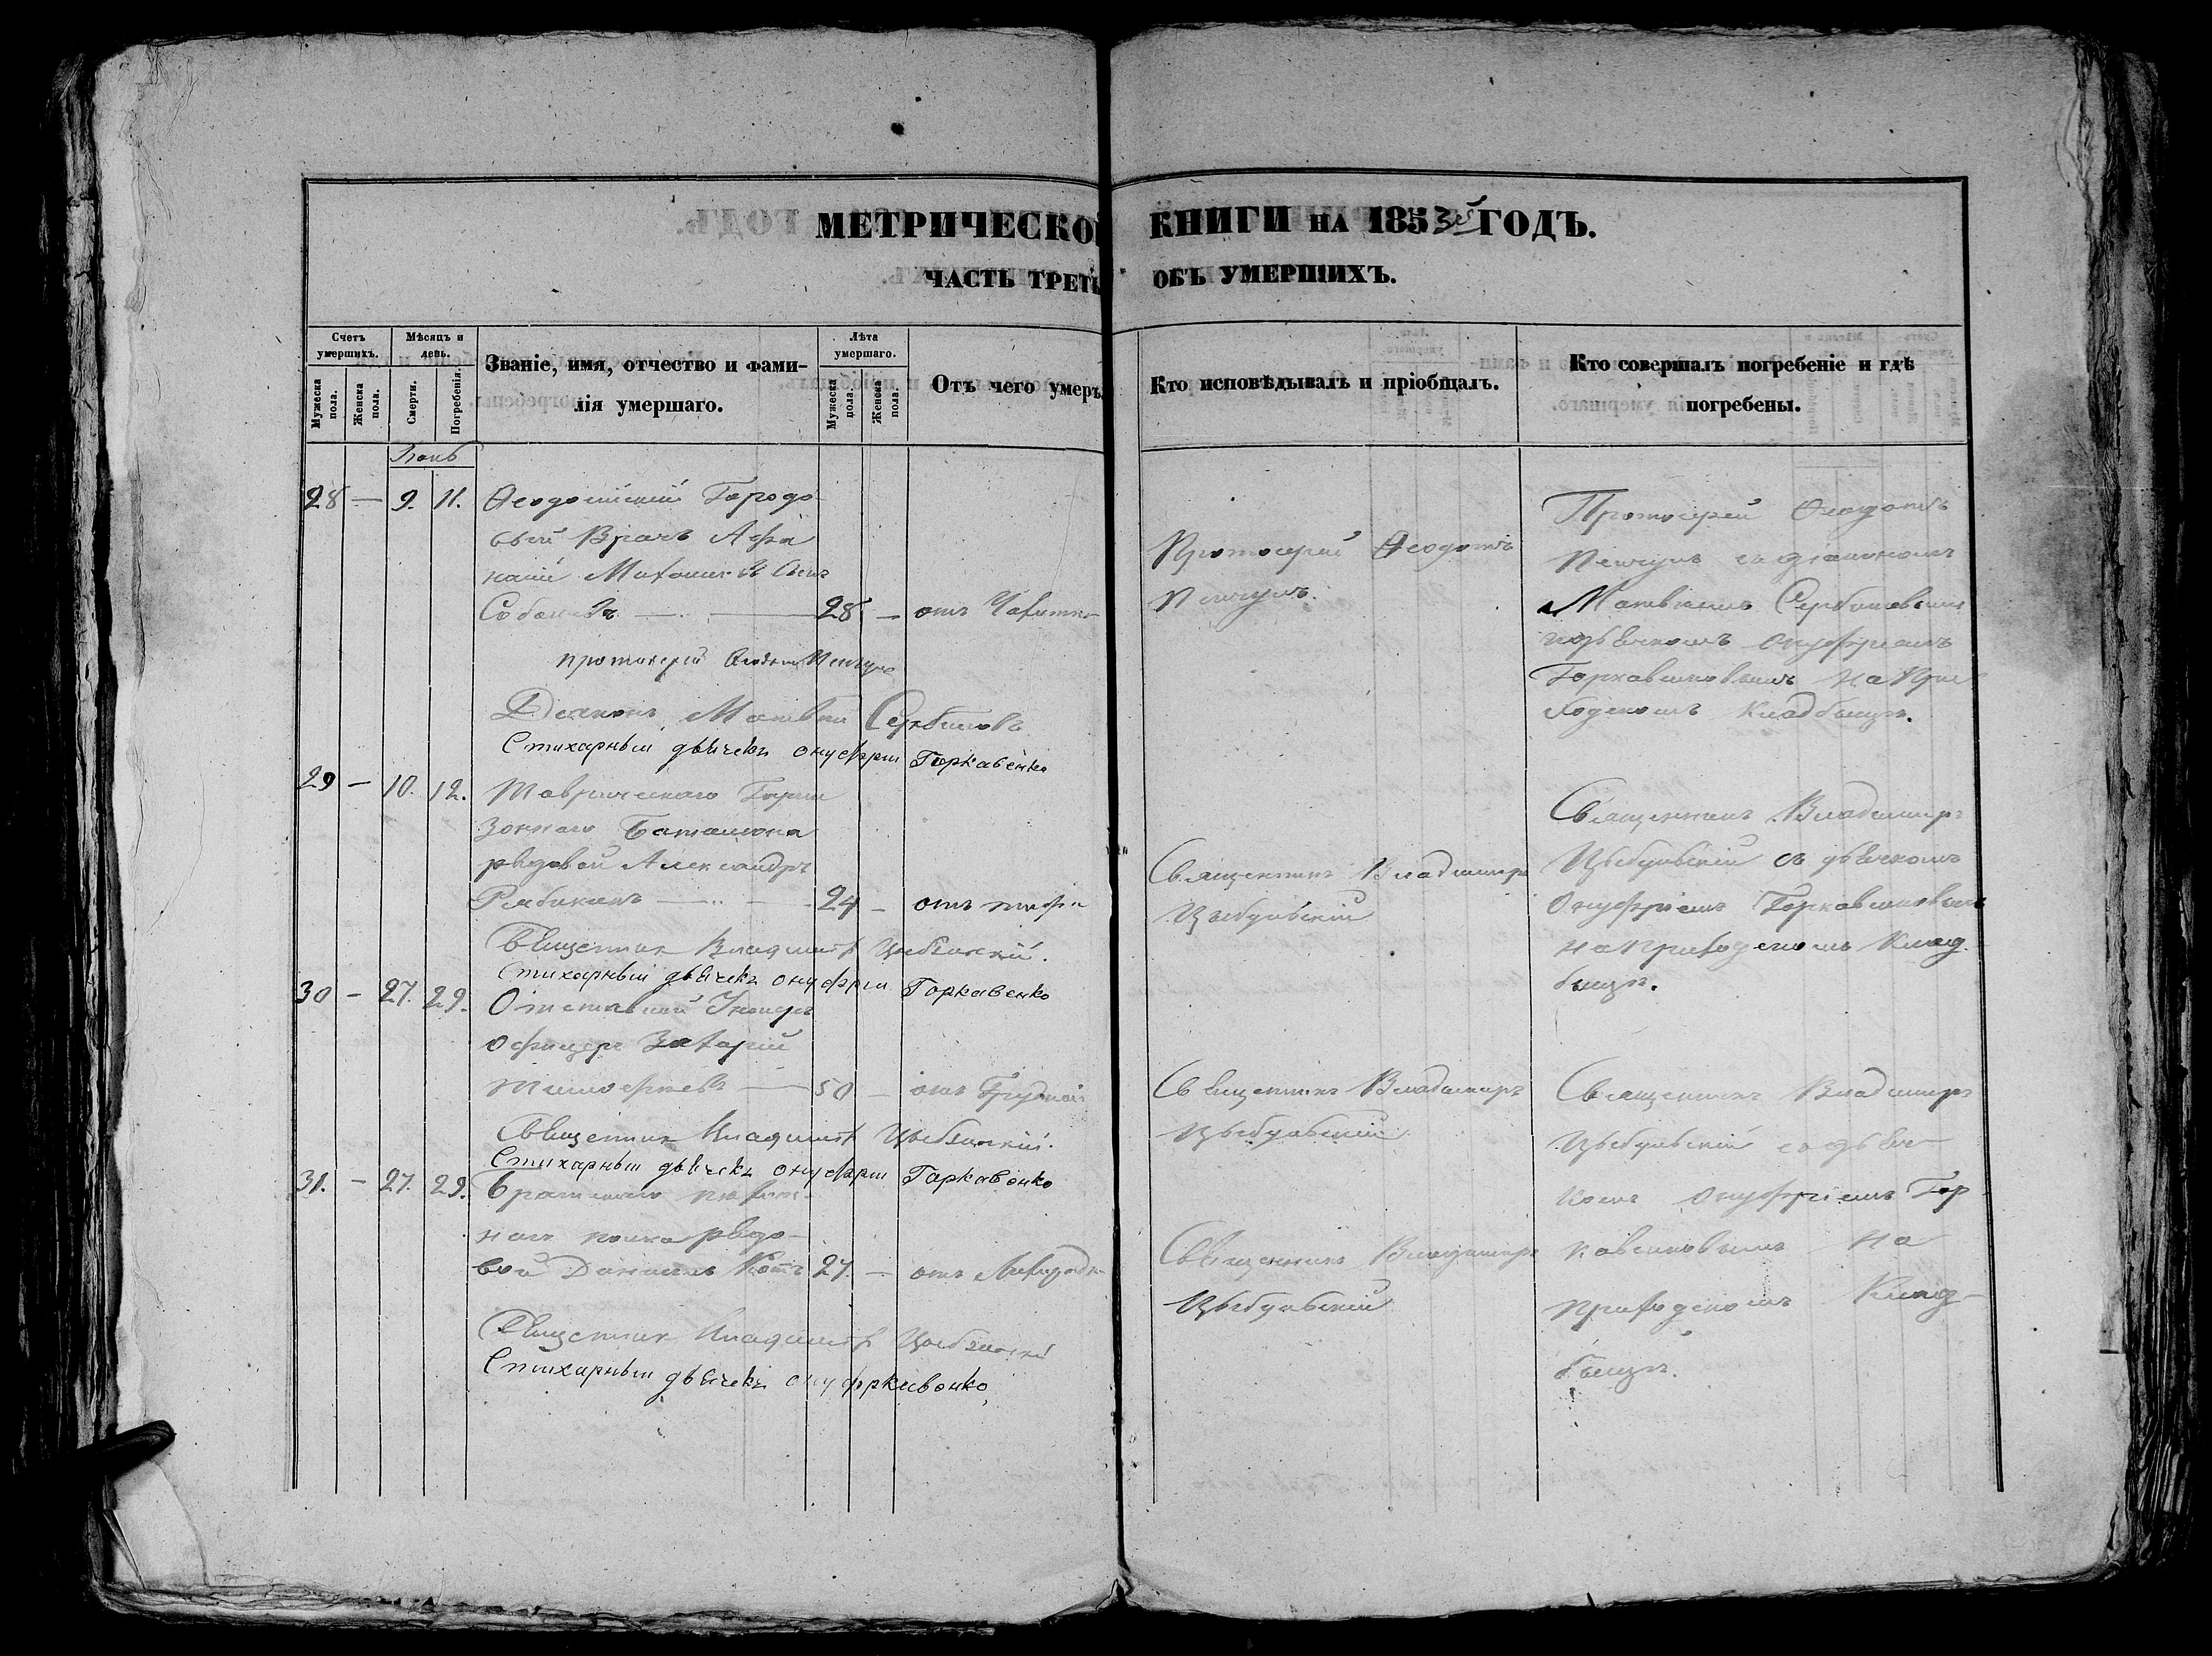 МЕТРИЧЕСКОЙ КНИГИ НА 1853 ГОДЪ.
ЧАСТЬ ТРЕТЬ ОБЪ УМЕРШИХЪ.
Счетъ умершихъ.
Мужеска пола.
Женска пола.
Мѣсяцъ и день.
Смерти.
Погребенія.
Званіе, имя, отчество и фами-
лія умершаго.
Лѣта умершаго.
Мужеска пола.
Женска пола.
Отъ чего умеръ.
Кто исповѣдывалъ и пріобщалъ.
Кто совершалъ погребеніе и гдѣ
погребены.
28 — 9. 11. Ѳеодосійскій Городо
вый Врачъ Афа
насій
28 — отъ Чахотки
Протоіерей Ѳеодотъ
Протоіерей Ѳеодотъ
съ діакономъ
Матвѣемъ Сербиновымъ
Онуфріемъ
Горкавенковымъ на При
ходскомъ Кладбищѣ.
протоіерей
Діаконъ Матвѣй Сербиновъ
Стихарный дьячекъ онуфрій Горкавенко
29 — 10. 12. Таврическаго Гарни
зоннаго Баталіона
рядовой Александръ
Рябикинъ 24 —
Священникъ Владимиръ
Цыбульскій
Священникъ Владимиръ
Цыбульскій съ дьячкомъ
Онуфріемъ Горкавенковымъ
на приходскомъ Клад
бищѣ.
Священник Владимир
Стихарный дьячекъ онуфрій Горкавенко
30 — 27. 29. Отставной Унтеръ
офицеръ Захарій
Тимофѣевъ 50 — отъ Грудной
Священникъ Владимиръ
Цыбульскій
Священникъ Владимиръ
Цыбульскій съ дьяч-
комъ Онуфріемъ Гор
кавенковымъ на
приходскомъ Клад-
бищѣ.
Священник Владимир
Стихарный дьячекъ онуфрій Горкавенко
31. — 27. 29.
наго полка рядо-
вой Даніилъ 27. — отъ Лихорадк
Священникъ Владимиръ
Цыбульскій
Священник Владимир
Стихарный дьячекъ